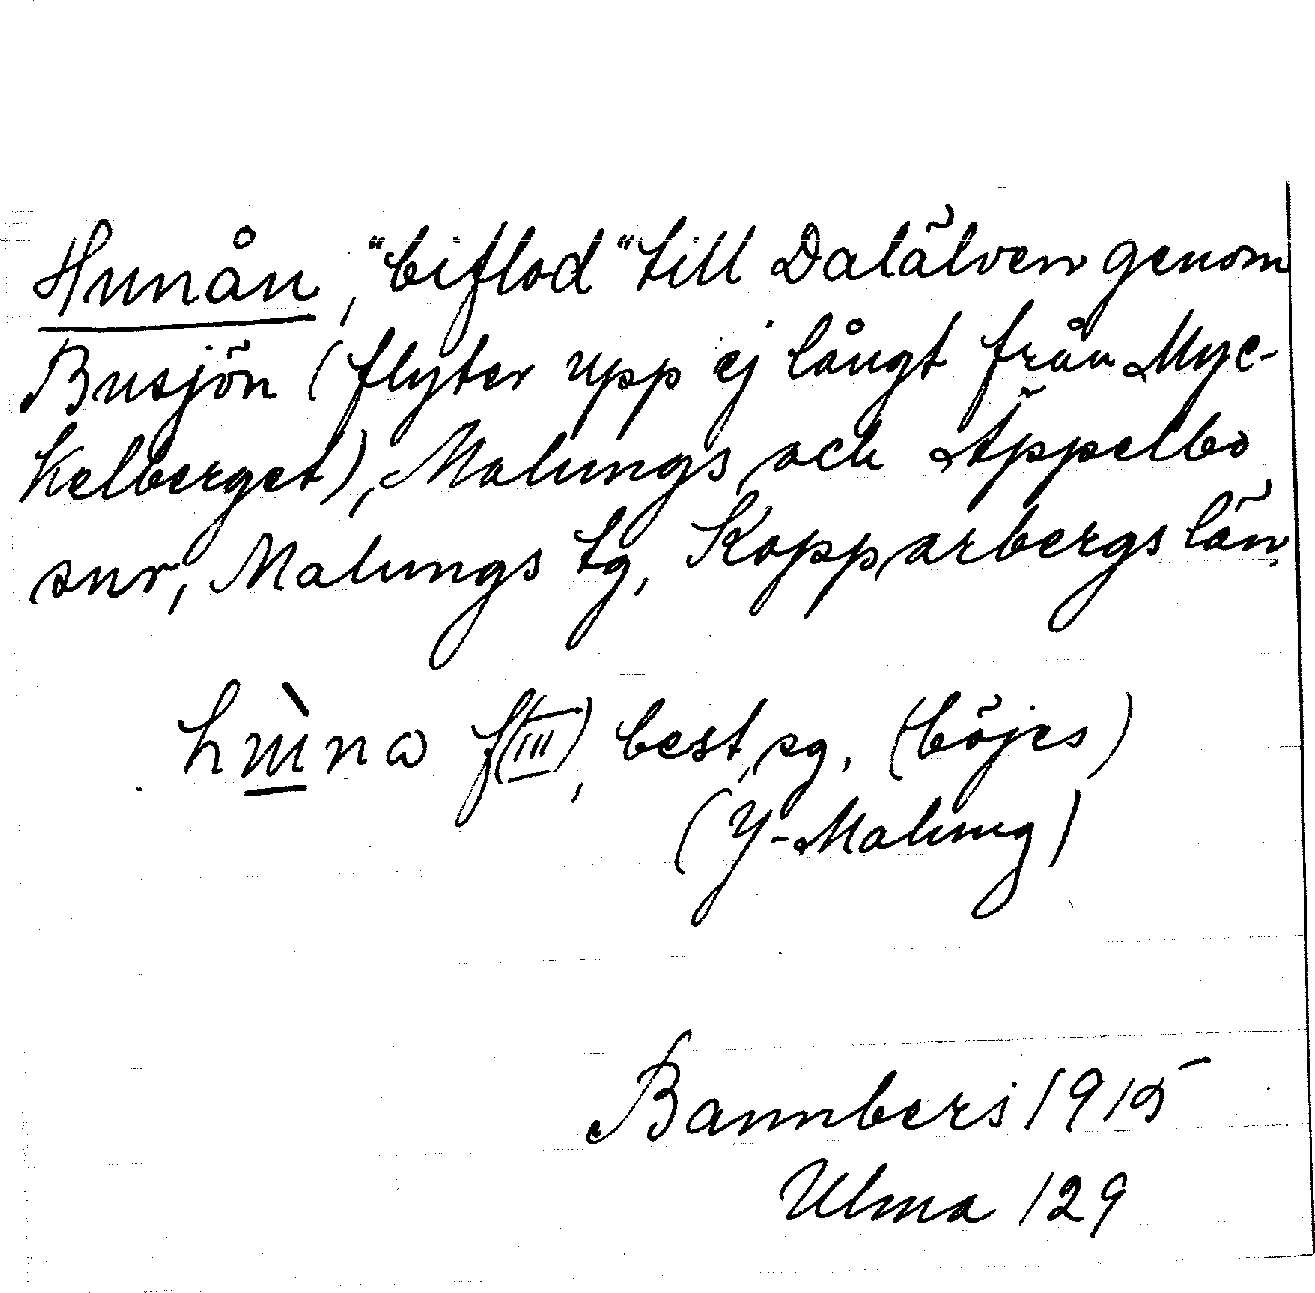 Hunån, "biflod" till Dalälven genom
Busjön (flyter upp ej långt från Myc-
kelberget), Malungs och Äppelbo
snr, Malungs tg, Kopparbergs län
f(III), best. sg. (böjes)
(Y-Malung)
Bannbers 1915
Ulma 129